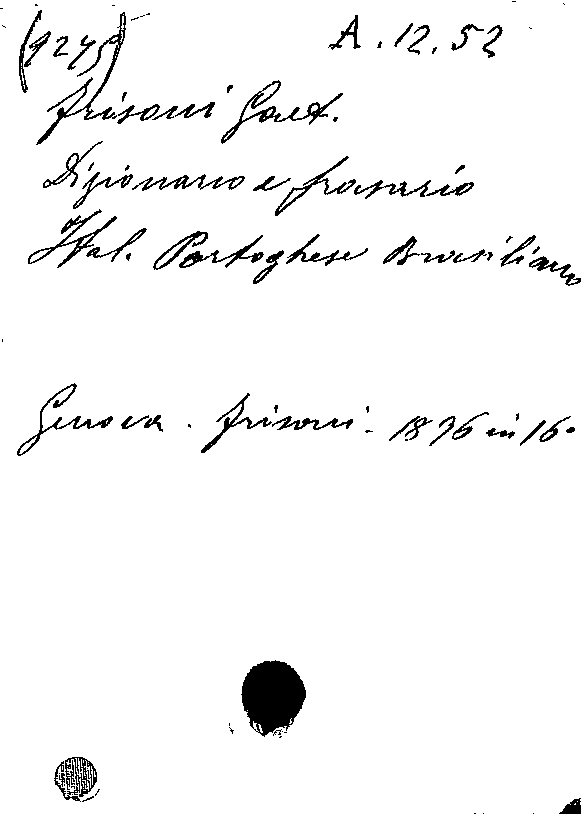 (9275) A.12.52
Frisoni Gaet.
Dizionario e frasario
Ital. Portoghese Brasiliano
Genova. Frisoni. 1896 in 16°